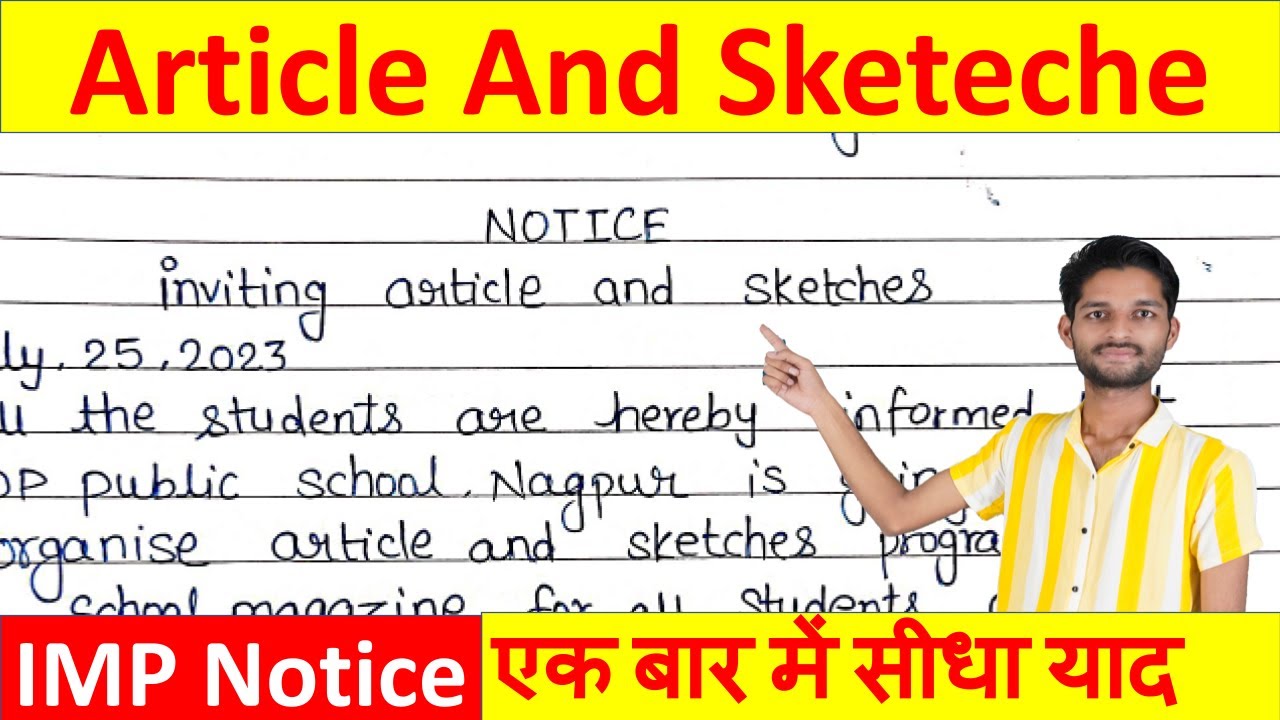 Article And Sketeche
NOTICE
inviting article and sketches
ly, 25, 2023
the students are hereby informed
public school, Nagpur is going
organise article and sketches progra
school magazine for all students
IMP Notice
एक बार में सीधा याद